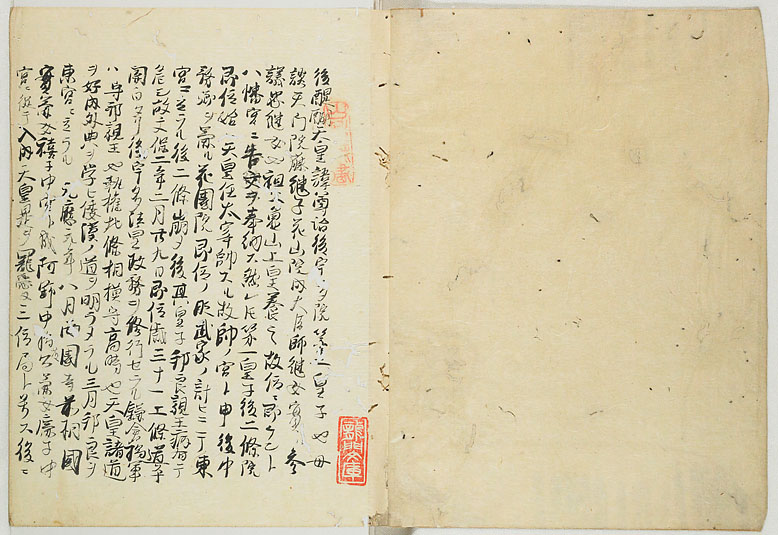 後醍醐天皇諱尊治後宇多院第二皇子也母
談天門院藤継子花山院内大臣師継女実ハ参
議忠継女也祖父亀山上皇養之故位ニ即ケント
八幡宮ニ告文ヲ奉納ス然レ𪜈第一皇子後二條院
即位始ハ天皇任大宰帥スル故帥ノ宮ト申後中
務卿ヲ兼ル花園院即位ノ時武家ノ計ヒニテ東
宮ニ立ラル後二條崩メ後其皇子邦良親王病
故文保二年二月廿九日即位歳三十一二條道平
関白タリ後宇多法皇政務ヲ修行セラル鎌倉将軍
ハ守邦親王也執権北條相模守高時也天皇諸道
ヲ好内外典ヲ学ヒ倭漢ノ道ヲ明ラメラル三月邦良ヲ
東宮ニ立ラル元應元年八月西園寺前相國
實兼女禧子中宮ト成阿野中将公廉女廉子中
宮ニ従テ入内天皇是ヲ寵愛メ三位局ト号ス後ニ